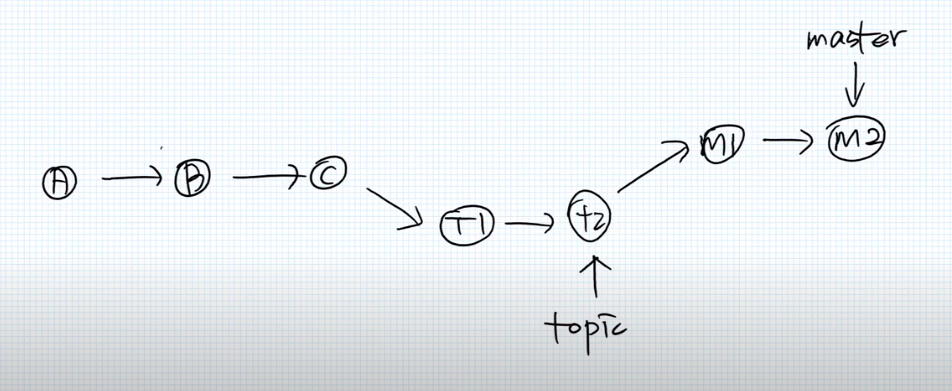 master
A B C M1 M2
T1 t2
topic